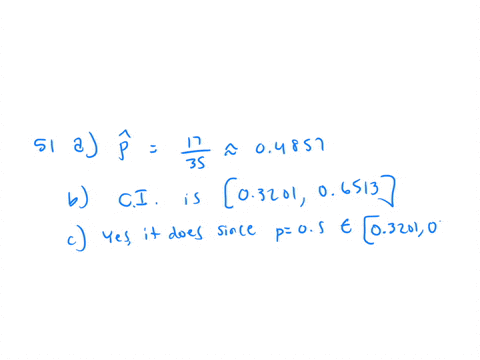 51 a) p̂ = 17/35 ≈ 0.4857
b) C.I. is [0.3201, 0.6513]
c) Yes it does since p=0.5 ∈ [0.3201, 0.